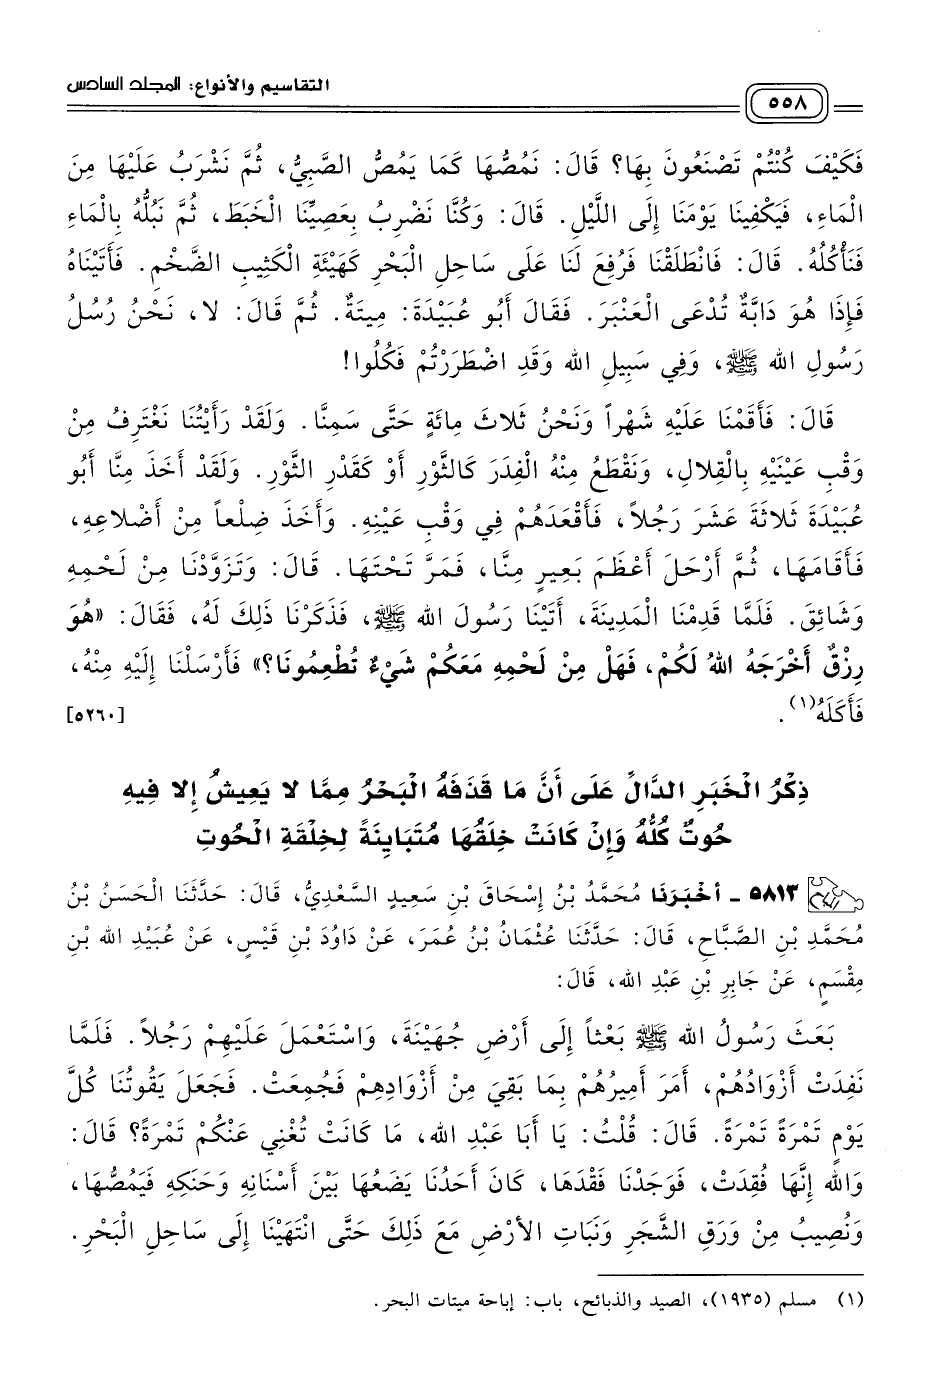 التقاسيم والأنواع: المجلد السادس
٥٥٨
فَكَيْفَ كُنْتُمْ تَصْنَعُونَ بِهَا؟ قَالَ: نَمُصُّهَا كَمَا يَمُصُّ الصَّبِيُّ، ثُمَّ نَشْرَبُ عَلَيْهَا مِنَ
الْمَاءِ، فَيَكْفِينَا يَوْمَنَا إِلَى اللَّيْلِ. قَالَ: وَكُنَّا نَضْرِبُ بِعَصِيِّنَا الْخَبَطَ، ثُمَّ نَبُلُّهُ بِالْمَاءِ
فَنَأْكُلُهُ. قَالَ: فَانْطَلَقْنَا فَرُفِعَ لَنَا عَلَى سَاحِلِ الْبَحْرِ كَهَيْئَةِ الْكَثِيبِ الضَّخْمِ. فَأَتَيْنَاهُ
فَإِذَا هُوَ دَابَّةٌ تُدْعَى الْعَنْبَرَ. فَقَالَ أَبُو عُبَيْدَةَ: مِيتَةٌ. ثُمَّ قَالَ: لا، نَحْنُ رُسُلُ
رَسُولِ الله ﷺ، وَفِي سَبِيلِ الله وَقَدِ اضْطَرَرْتُمْ فَكُلُوا!
قَالَ: فَأَقَمْنَا عَلَيْهِ شَهْراً وَنَحْنُ ثَلاثَ مِائَةٍ حَتَّى سَمِنَّا. وَلَقَدْ رَأَيْتُنَا نَغْتَرِفُ مِنْ
وَقْبِ عَيْنَيْهِ بِالْقِلالِ، وَنَقْطَعُ مِنْهُ الْفِدَرَ كَالثَّوْرِ أَوْ كَقَدْرِ الثَّوْرِ. وَلَقَدْ أَخَذَ مِنَّا أَبُو
عُبَيْدَةَ ثَلاثَةَ عَشَرَ رَجُلاً، فَأَقْعَدَهُمْ فِي وَقْبِ عَيْنِهِ. وَأَخَذَ ضِلْعاً مِنْ أَضْلاعِهِ،
فَأَقَامَهَا، ثُمَّ أَرْحَلَ أَعْظَمَ بَعِيرٍ مِنَّا، فَمَرَّ تَحْتَهَا. قَالَ: وَتَزَوَّدْنَا مِنْ لَحْمِهِ
وَشَائِقَ. فَلَمَّا قَدِمْنَا الْمَدِينَةَ، أَتَيْنَا رَسُولَ الله ﷺ، فَذَكَرْنَا ذَلِكَ لَهُ، فَقَالَ: «هُوَ
رِزْقٌ أَخْرَجَهُ اللهُ لَكُمْ، فَهَلْ مِنْ لَحْمِهِ مَعَكُمْ شَيْءٌ تُطْعِمُونَا؟» فَأَرْسَلْنَا إِلَيْهِ مِنْهُ،
فَأَكَلَهُ(١). [٥٢٦٠]
ذِكْرُ الْخَبَرِ الدَّالِّ عَلَى أَنَّ مَا قَذَفَهُ الْبَحْرُ مِمَّا لا يَعِيشُ إلا فِيهِ
حُوتٌ كُلُّهُ وَإِنْ كَانَتْ خِلَقُهَا مُتَبَايِنَةً لِخِلْقَةِ الْحُوتِ
٥٨١٣ - أَخْبَرَنَا مُحَمَّدُ بْنُ إِسْحَاقَ بْنِ سَعِيدٍ السَّعْدِيُّ، قَالَ: حَدَّثَنَا الْحَسَنُ بْنُ
مُحَمَّدِ بْنِ الصَّبَّاحِ، قَالَ: حَدَّثَنَا عُثْمَانُ بْنُ عُمَرَ، عَنْ دَاوُدَ بْنِ قَيْسٍ، عَنْ عُبَيْدِ الله بْنِ
مِقْسَمٍ، عَنْ جَابِرِ بْنِ عَبْدِ الله، قَالَ:
بَعَثَ رَسُولُ الله ﷺ بَعْثاً إِلَى أَرْضِ جُهَيْنَةَ، وَاسْتَعْمَلَ عَلَيْهِمْ رَجُلاً. فَلَمَّا
نَفِدَتْ أَزْوَادُهُمْ، أَمَرَ أَمِيرُهُمْ بِمَا بَقِيَ مِنْ أَزْوَادِهِمْ فَجُمِعَتْ. فَجَعَلَ يَقُوتُنَا كُلَّ
يَوْمٍ تَمْرَةً تَمْرَةً. قَالَ: قُلْتُ: يَا أَبَا عَبْدِ الله، مَا كَانَتْ تُغْنِي عَنْكُمْ تَمْرَةً؟ قَالَ:
وَالله إِنَّهَا فُقِدَتْ، فَوَجَدْنَا فَقْدَهَا، كَانَ أَحَدُنَا يَضَعُهَا بَيْنَ أَسْنَانِهِ وَحَنَكِهِ فَيَمُصُّهَا،
وَنُصِيبُ مِنْ وَرَقِ الشَّجَرِ وَنَبَاتِ الأَرْضِ مَعَ ذَلِكَ حَتَّى انْتَهَيْنَا إِلَى سَاحِلِ الْبَحْرِ.
(١) مسلم (١٩٣٥)، الصيد والذبائح، باب: إباحة ميتات البحر.